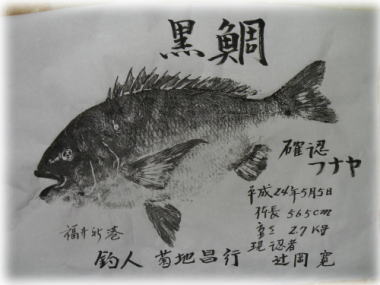 黒鯛
確認
フナヤ
平成24年5月5日
拆長 56.5cm
重さ 2.7kg
現認者
辻岡 寛
福井新港
釣人 菊地昌行